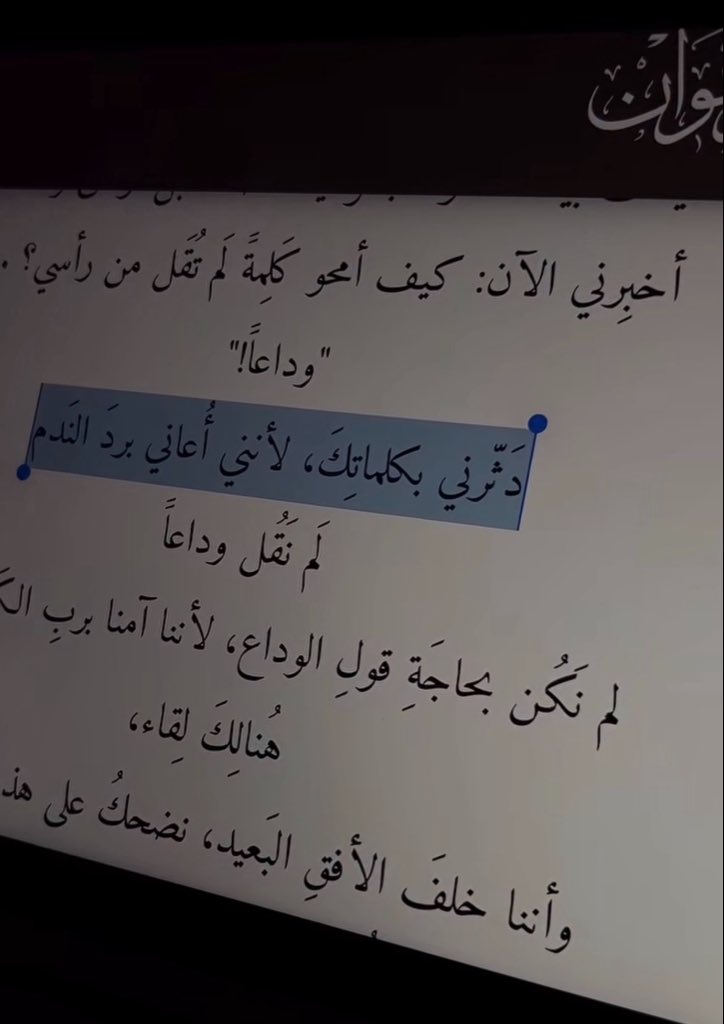 أخبِرني الآن: كيف أمحو كَلِمةً لَم تُقَل من رأسي؟ .
"وداعاً!"
دَثّرني بكلماتِكَ، لأنني أُعاني بردَ النَدم
لَم نَقُل وداعاً
لم نَكُن بحاجَةِ قولِ الوداع، لأننا آمنا بربِ
هُنالِكَ لِقاء،
وأننا خلفَ الأفقِ البَعيد، نضحكُ على